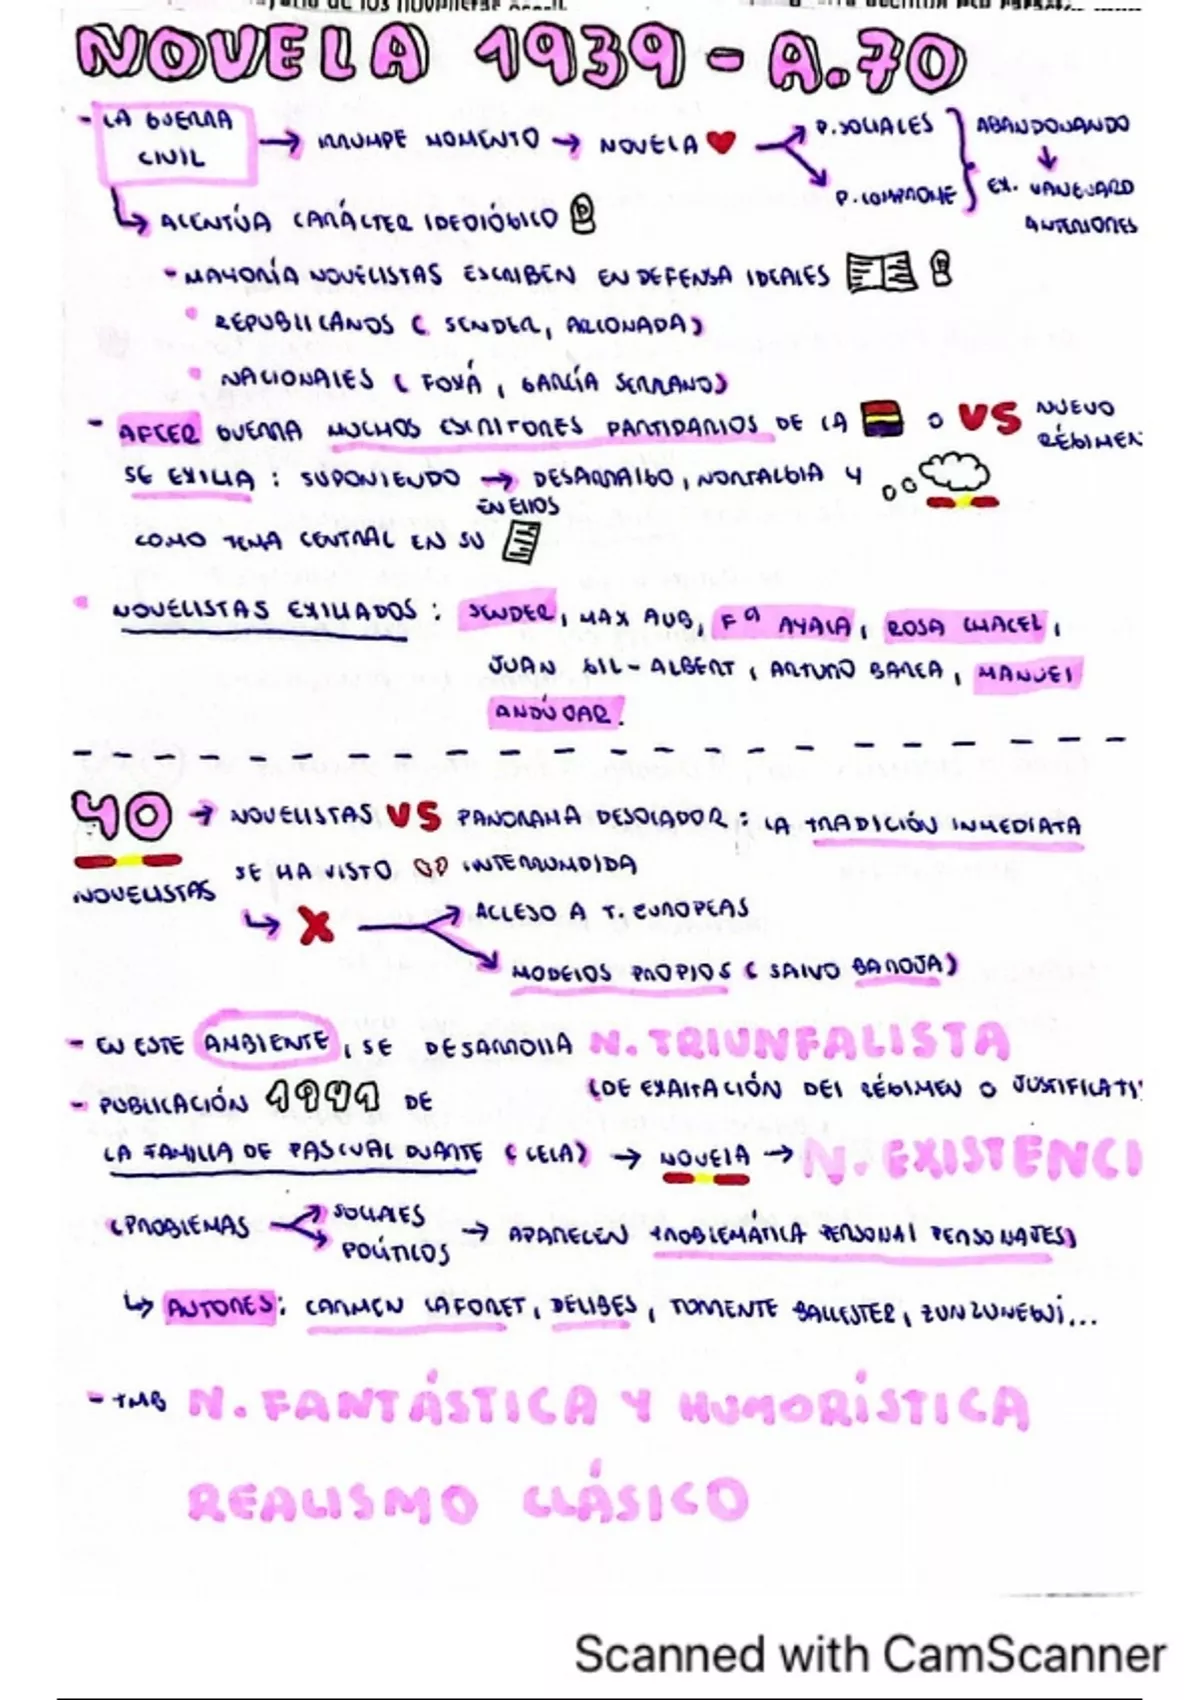 NOVELA 1939 - A.70
- LA GUERRA CIVIL → IRRUMPE MOMENTO → NOVELA → P. SOCIALES ABANDONANDO
P. COMPROME EX. VANGUARD ANTERIORES
↳ ACENTÚA CARÁCTER IDEOLÓGICO
- MAYORÍA NOVELISTAS ESCRIBEN EN DEFENSA IDEALES
• REPUBLICANOS ( SENDER, ARCONADA)
• NACIONALES ( FOXÁ, GARCÍA SERRANO)
- AFTER GUERRA MUCHOS ESCRITORES PARTIDARIOS DE LA O VS NUEVO RÉGIMEN
SE EXILIA : SUPONIENDO → DESARRAIGO, NOSTALGIA Y
EN ELLOS
COMO TEMA CENTRAL EN SU
• NOVELISTAS EXILIADOS : SENDER, MAX AUB, Fº AYALA, ROSA CHACEL,
JUAN GIL-ALBERT, ARTURO BAREA, MANUEL
ANDÚJAR.
40 → NOVELISTAS VS PANORAMA DESOLADOR : LA TRADICIÓN INMEDIATA
NOVELISTAS
SE HA VISTO INTERRUMPIDA
↳ X → ACCESO A T. EUROPEAS
MODELOS PROPIOS ( SALVO BAROJA)
- EN ESTE AMBIENTE, SE DESARROLLA N. TRIUNFALISTA
(DE EXALTACIÓN DEL RÉGIMEN O JUSTIFICATI
- PUBLICACIÓN 1941 DE
LA FAMILIA DE PASCUAL DUARTE ( CELA) → NOVELA → N. EXISTENCI
(PROBLEMAS SOCIALES
POLÍTICOS → APARECEN PROBLEMÁTICA PERSONAL PERSONAJES)
↳ AUTORES : CARMEN LAFORET, DELIBES, TORRENTE BALLESTER, ZUNZUNEGUI...
- TMB N. FANTÁSTICA Y HUMORÍSTICA
REALISMO CLÁSICO
Scanned with CamScanner